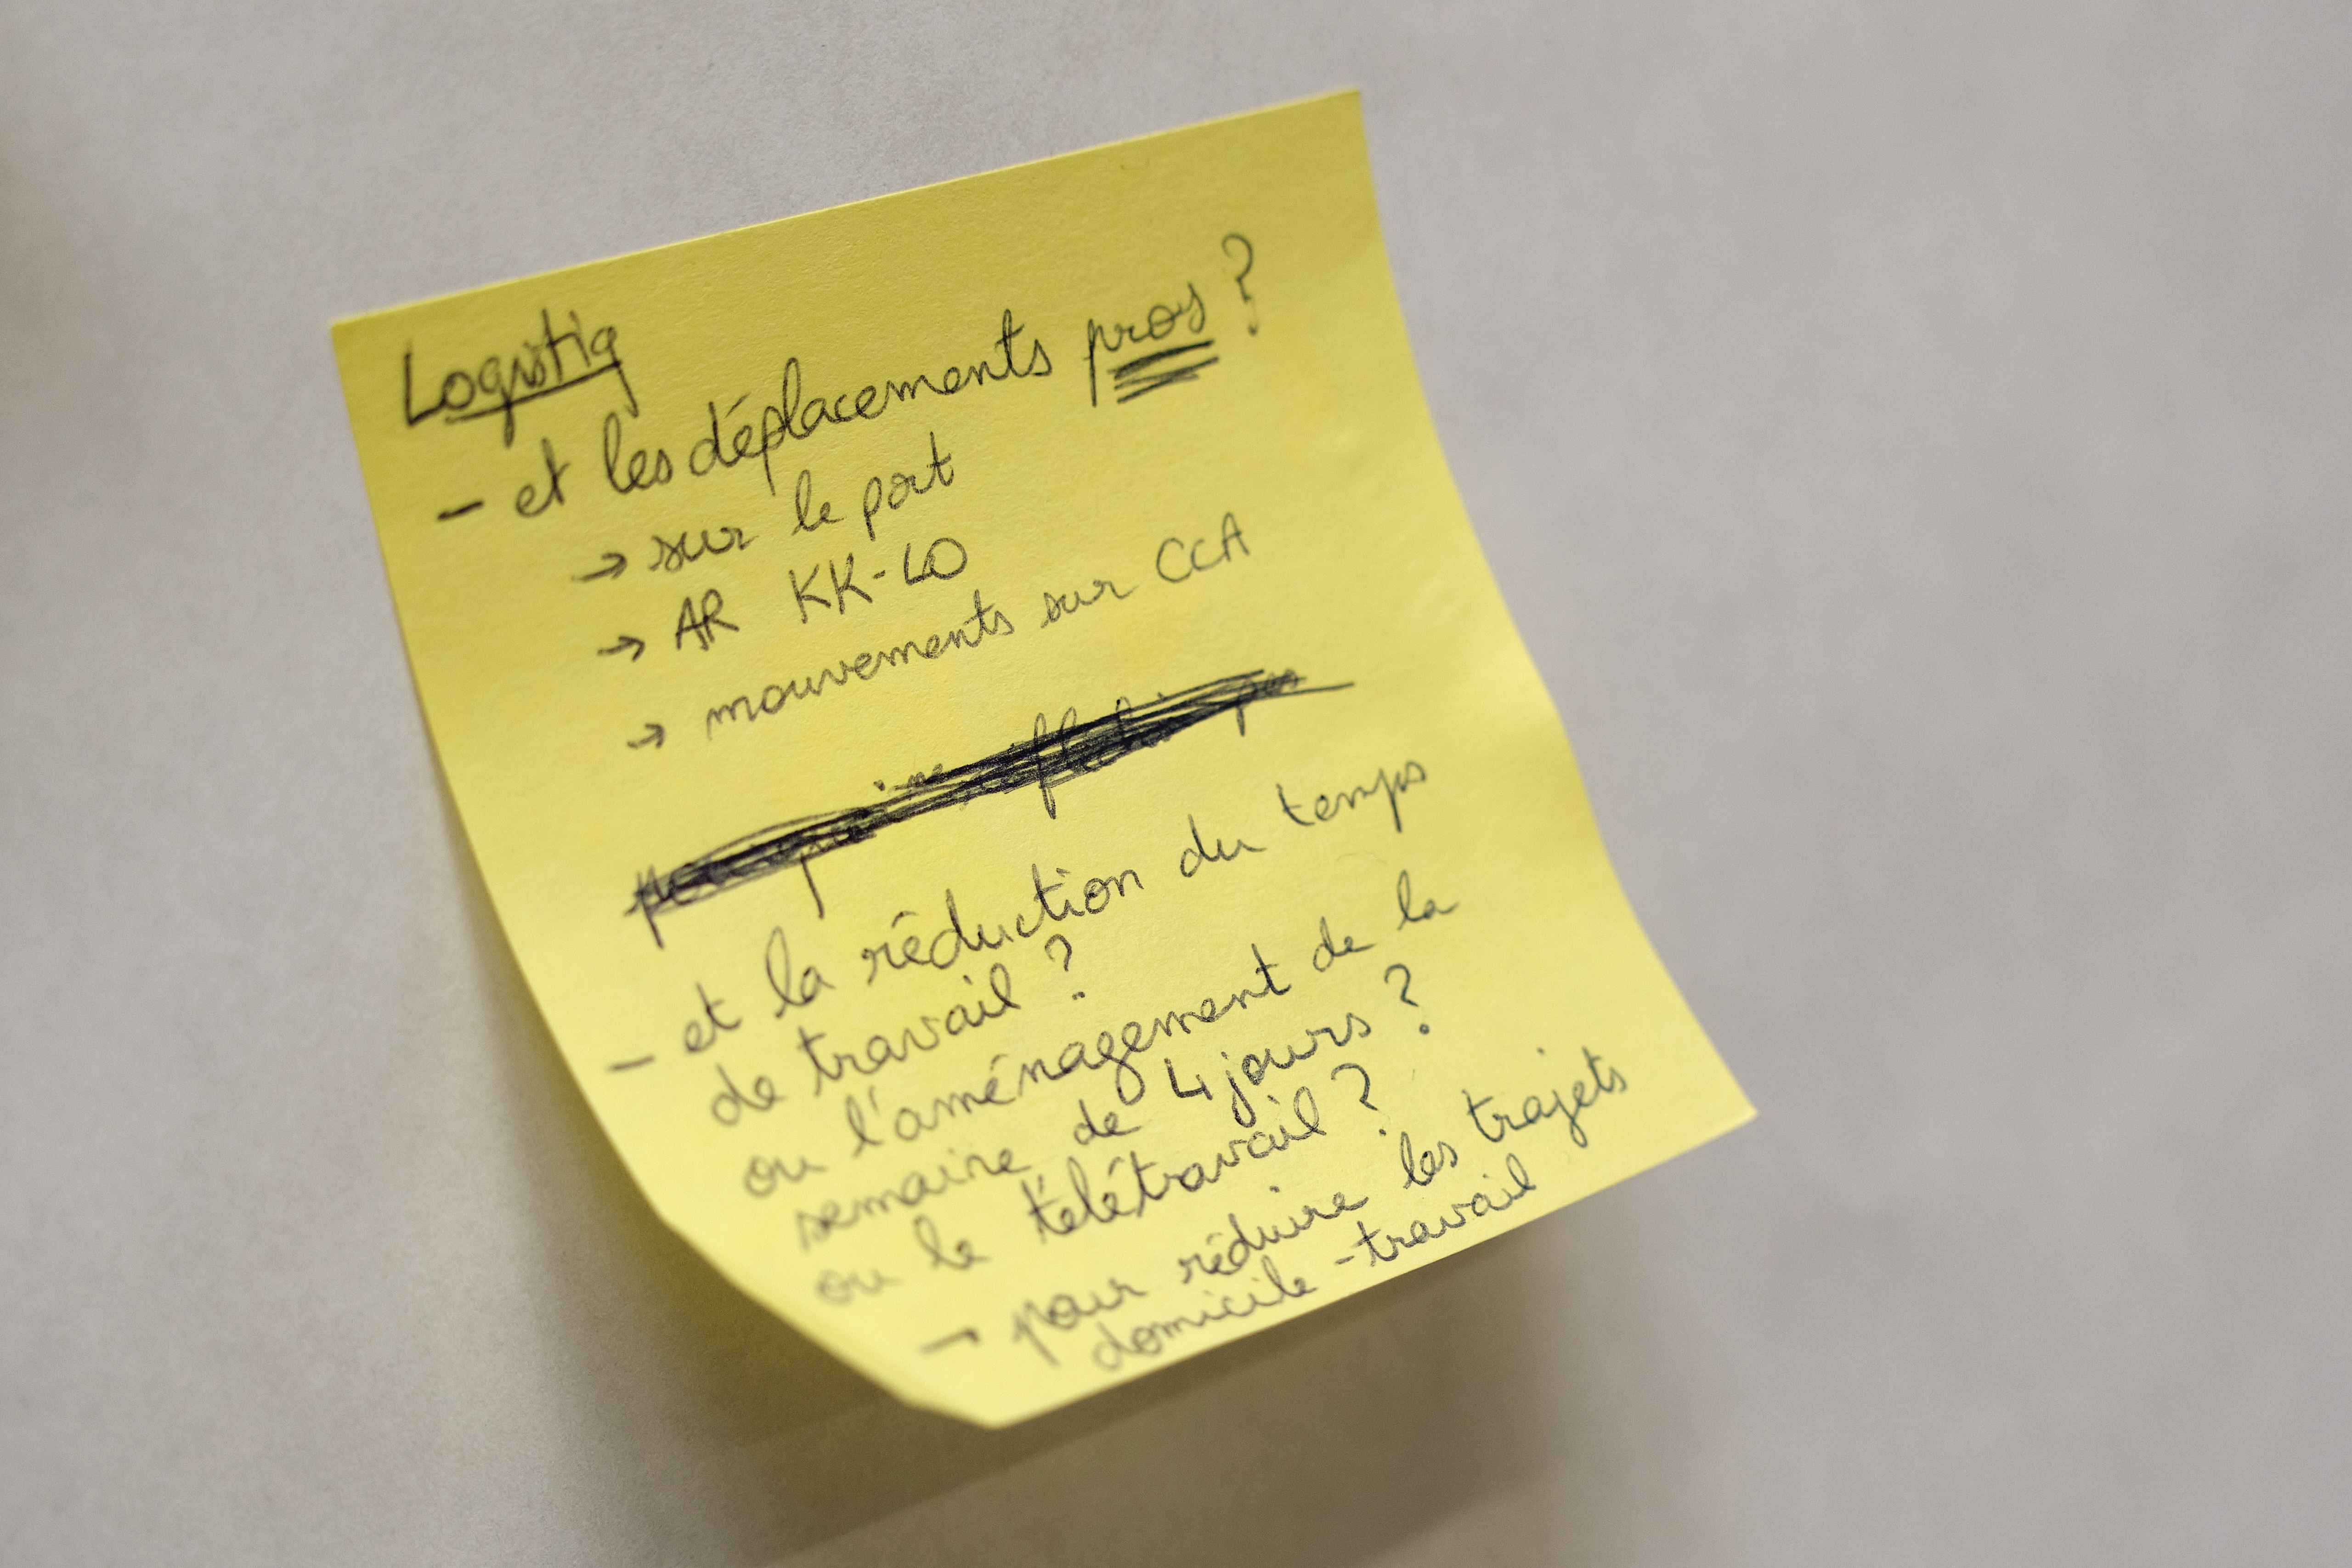 Logistiq
- et les déplacements pros ?
→ sur le port
→ AR KK-LO
→ mouvements sur CCA
- et la réduction du temps
de travail ?
ou l'aménagement de la
semaine de 4 jours ?
ou le télétravail ?
→ pour réduire les trajets
domicile-travail